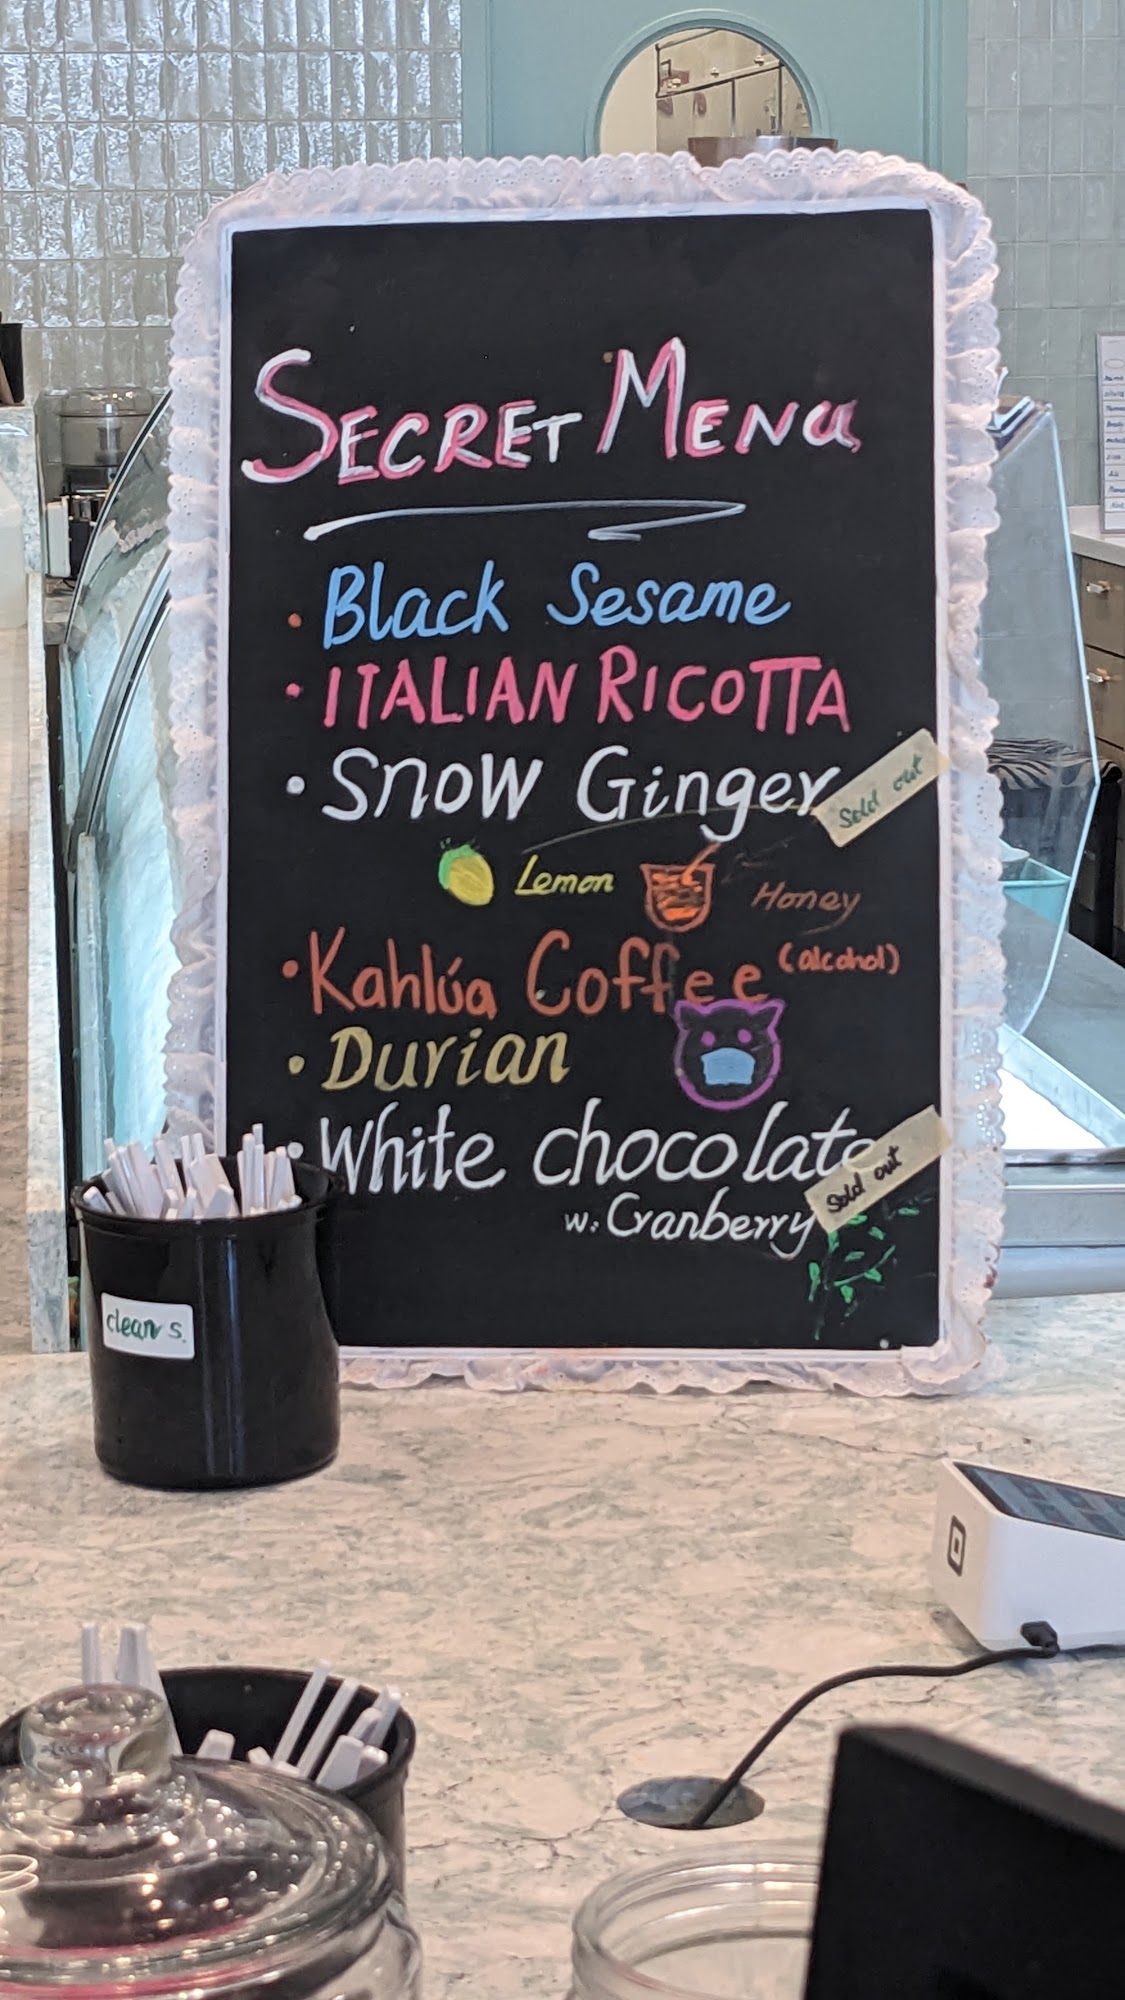 SECRET MENU
• Black Sesame
• ITALIAN RICOTTA
• Snow Ginger
Sold out
Lemon Honey
• Kahlúa Coffee (alcohol)
• Durian
• White chocolate
Sold out
w. Cranberry
clean s.